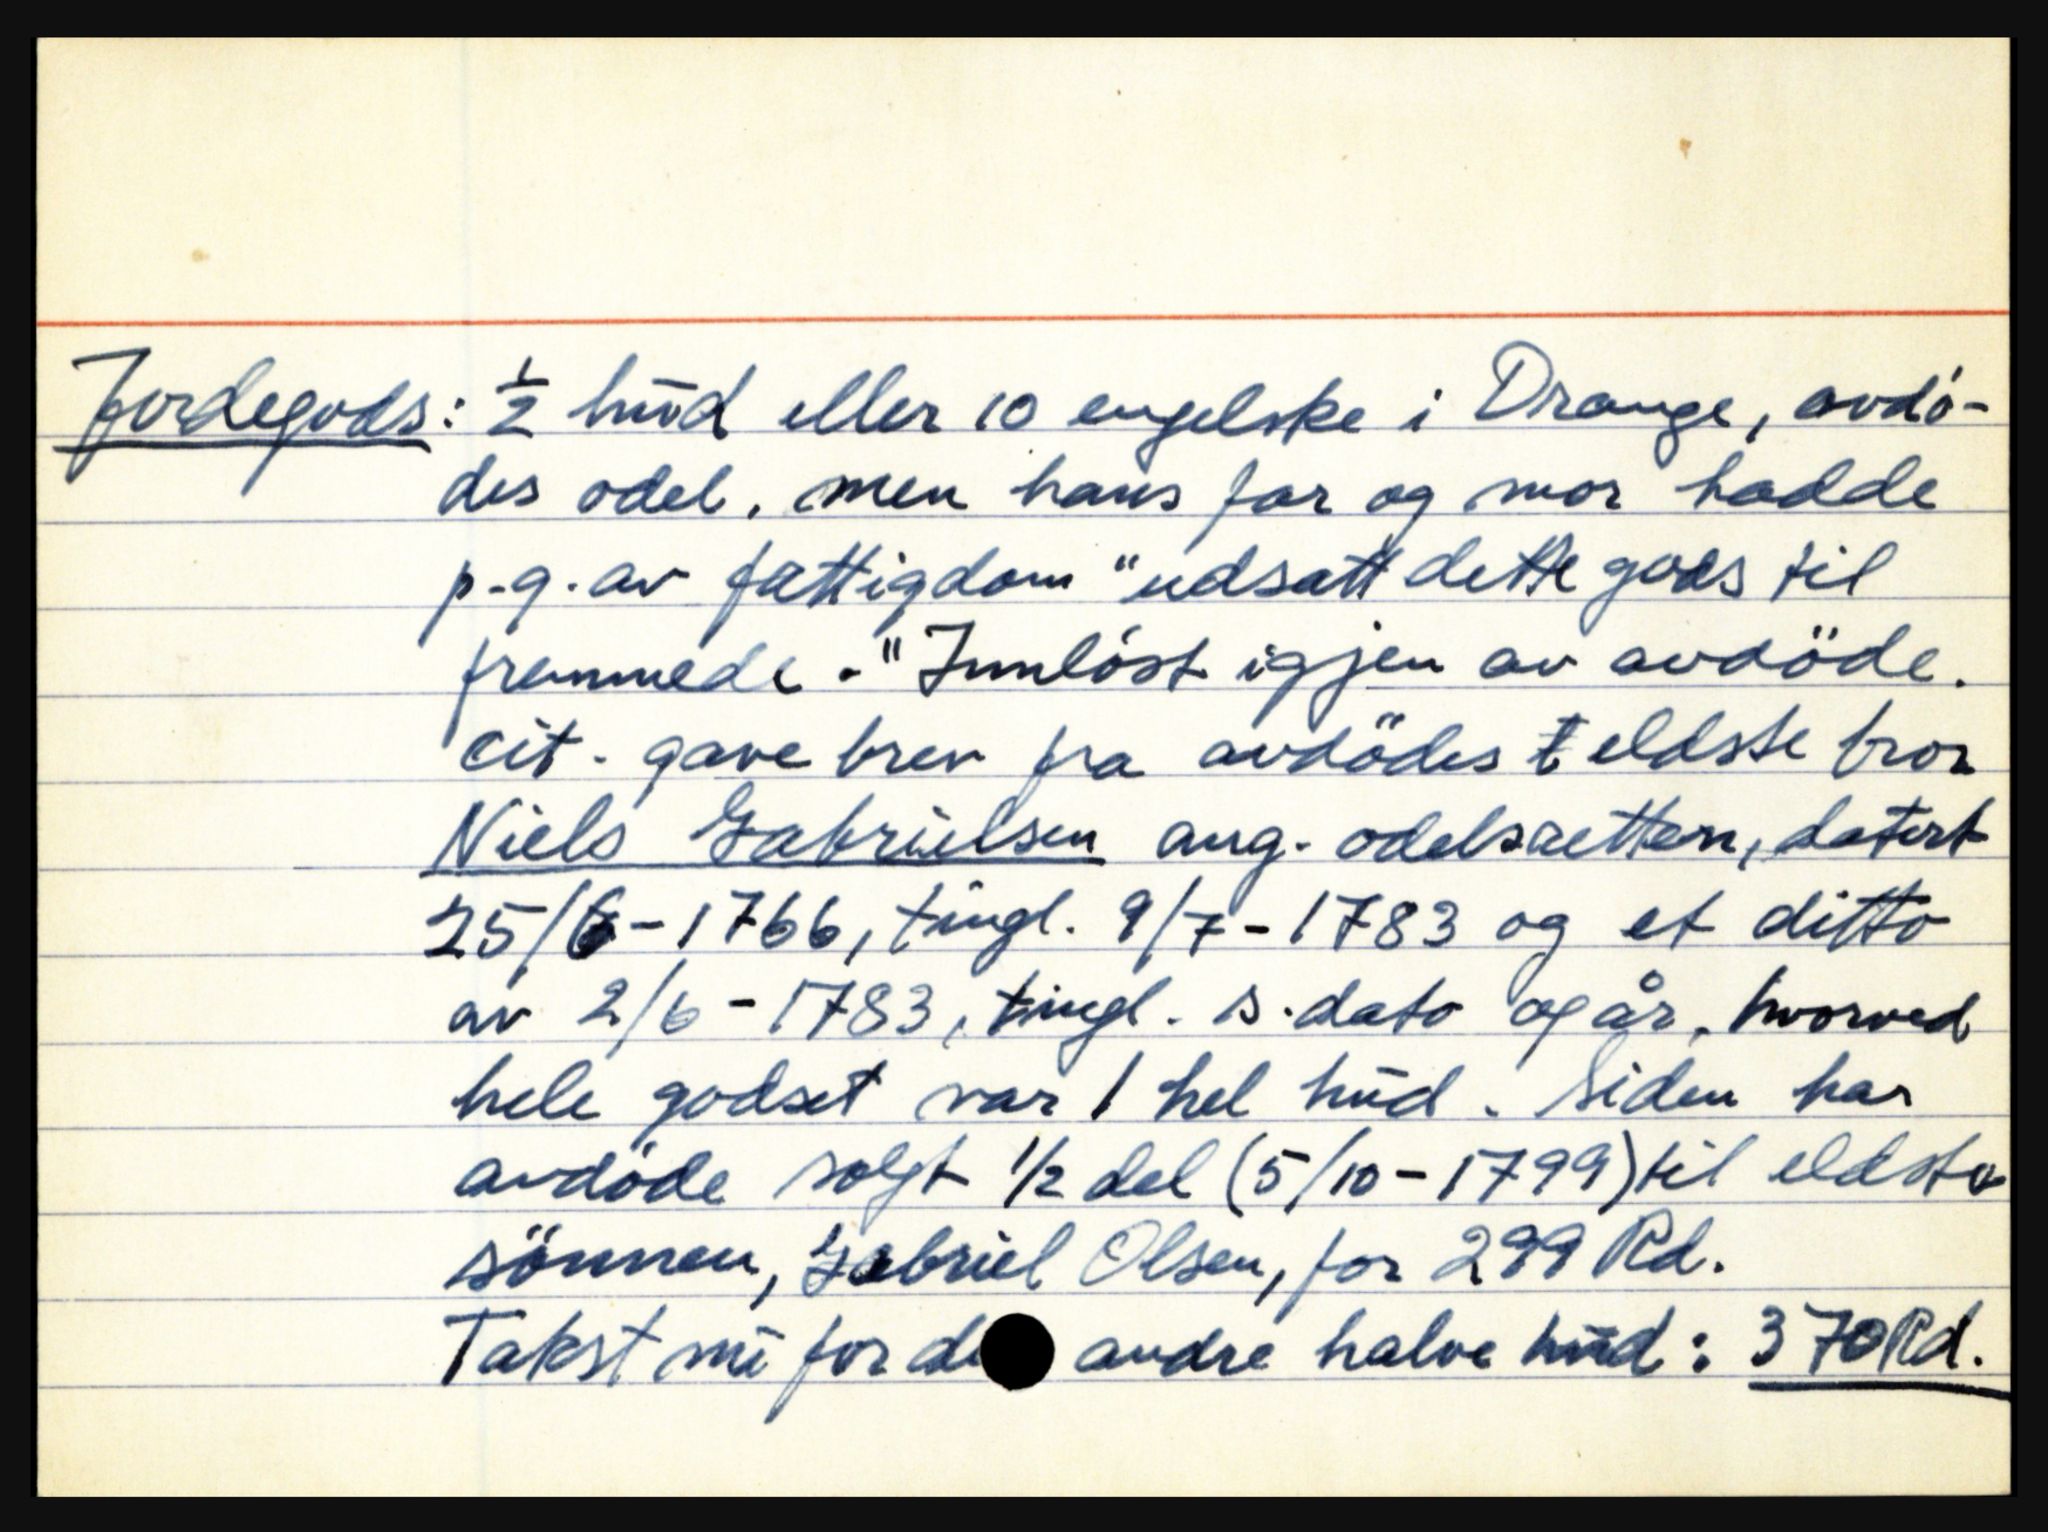 Jordegods: ½ hud eller 10 engelske i Drange, avdö-
des odel, men hans far og mor hadde
p.g. av fattigdom "udsatt dette gods til
fremmede." Innlöst igjen av avdöde.
cit. gavebrev fra avdödes eldste bror
Niels Gabrielsen ang. odelsretten, datert
25/6-1766, tingl. 9/7-1783 og et ditto
av 2/6-1783, tingl. s. dato og år, hvorved
hele godset var 1 hel hud. Siden har
avdöde solgt 1/2 del (5/10-1799) til eldste
sönnen, Gabriel Olsen, for 299 Rd.
Takst nu for andre halve hud: 370 Rd.